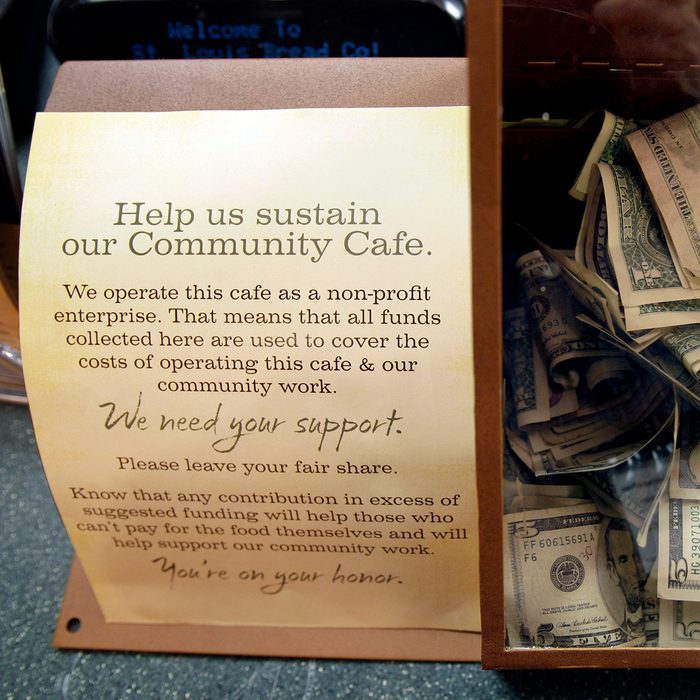 Welcome To
St. Louis Bread Co!
Help us sustain
our Community Cafe.
We operate this cafe as a non-profit
enterprise. That means that all funds
collected here are used to cover the
costs of operating this cafe & our
community work.
We need your support.
Please leave your fair share.
Know that any contribution in excess of
suggested funding will help those who
can't pay for the food themselves and will
help support our community work.
You're on your honor.
THE UNITED STATES
FEDERAL
FF60615691A
F6
5